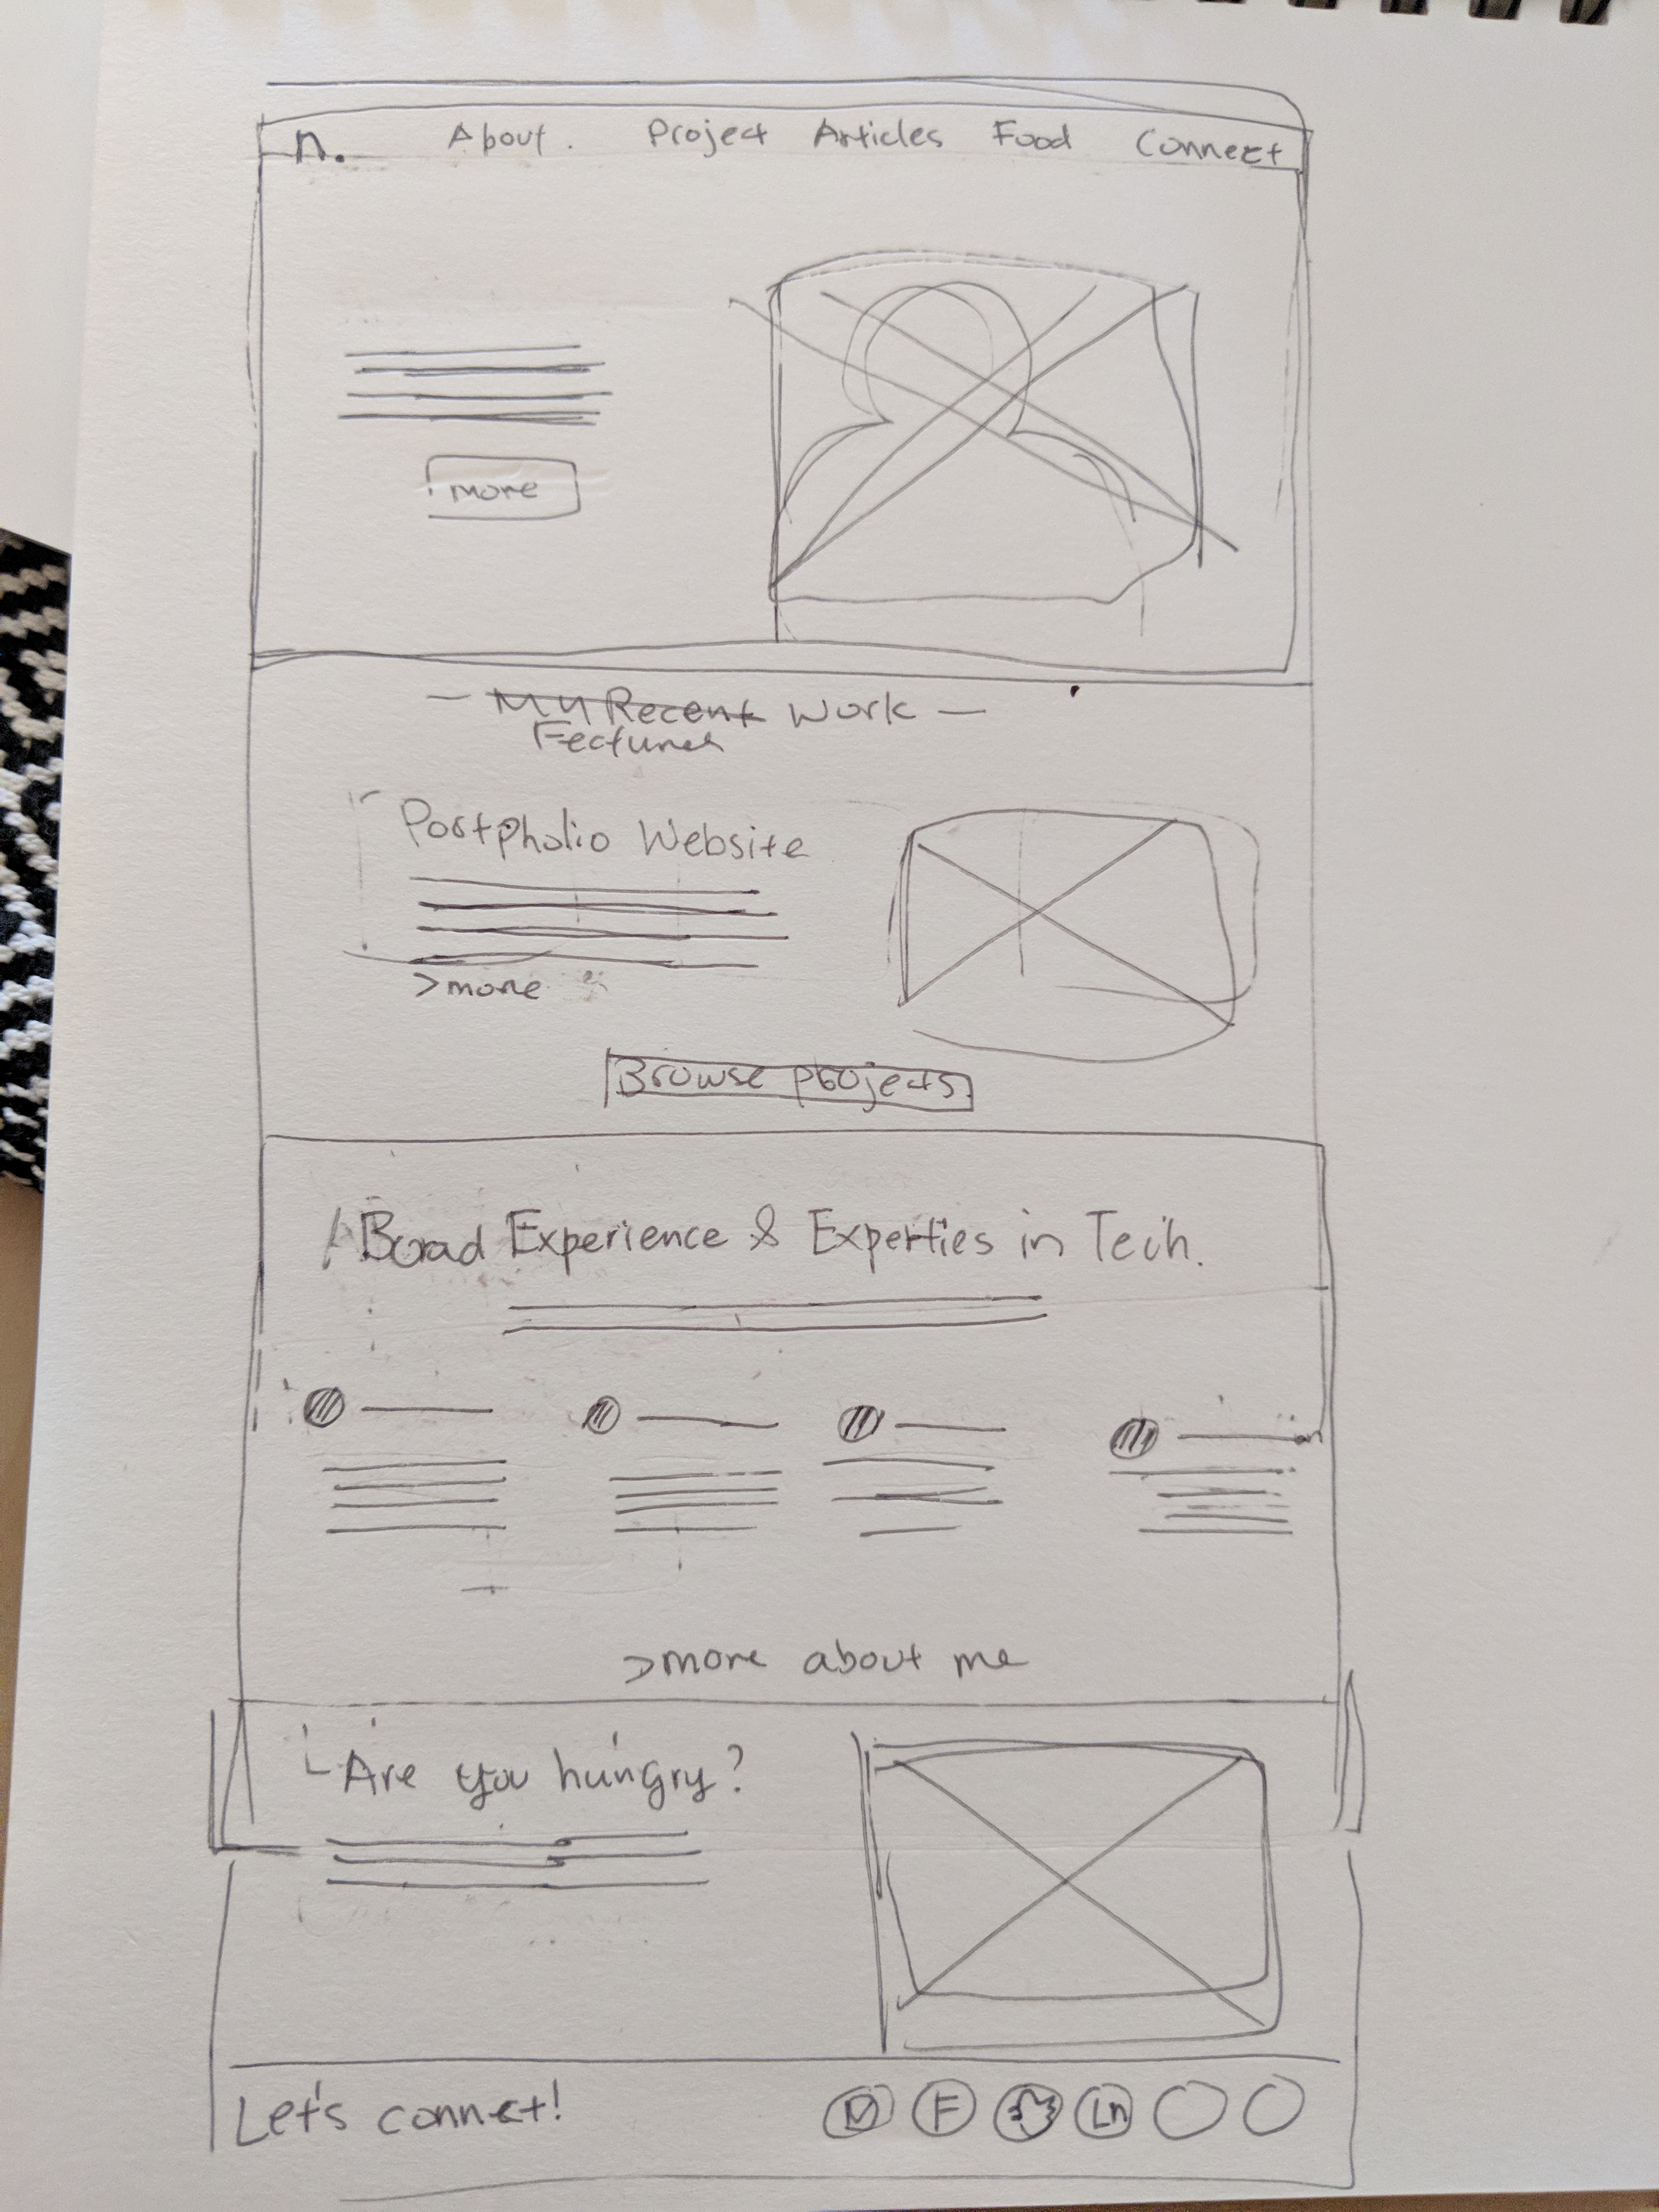 n. About. Project Articles Food Connect
more
- My Recent Work -
Features
Portpholio Website
>more
Browse projects
Borad Experience & Experties in Tech.
>more about me
Are you hungry?
Let's connect!
M F Ln